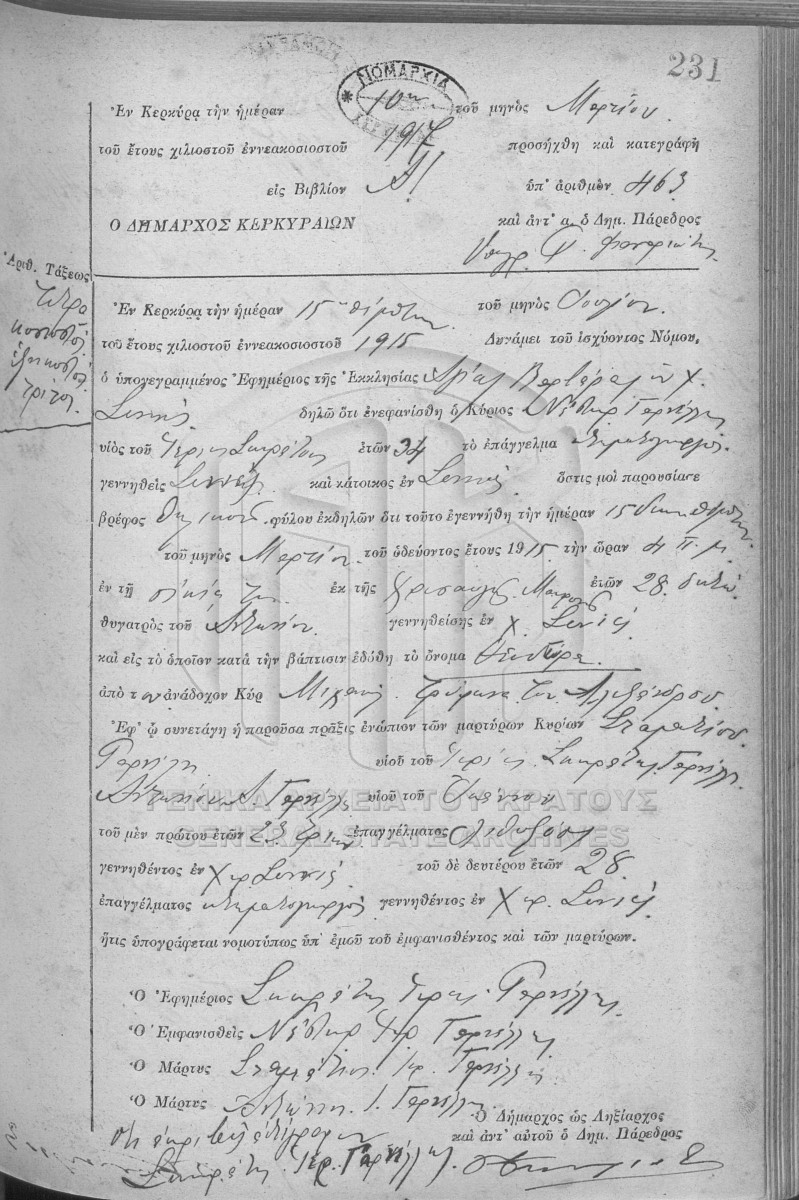 231
ΝΟΜΑΡΧΙΑ
Ἐν Κερκύρᾳ τὴν ἡμέραν 10ην τοῦ μηνὸς Μαρτίου
τοῦ ἔτους χιλιοστοῦ ἐννεακοσιοστοῦ 1917 προσήχθη καὶ κατεγράφη
εἰς Βιβλίον Α! ὑπ' ἀριθμὸν 463
Ο ΔΗΜΑΡΧΟΣ ΚΕΡΚΥΡΑΙΩΝ καὶ ἀντ' α. ὁ Δημ. Πάρεδρος
Ἀριθ. Τάξεως
Τετρα
κοσιοστὸς
ἑξηκοστὸς
τρίτος
Ἐν Κερκύρᾳ τὴν ἡμέραν 15 πέμπτην τοῦ μηνὸς
τοῦ ἔτους χιλιοστοῦ ἐννεακοσιοστοῦ 1915 Δυνάμει τοῦ ἰσχύοντος Νόμου.
ὁ ὑπογεγραμμένος Ἐφημέριος τῆς Ἐκκλησίας Ἁγίας Βαρβάρας Χ.
Σινιές. δηλῶ ὅτι ἐνεφανίσθη ὁ Κύριος Νέστωρ Γαρνέλης
υἱὸς τοῦ Ἱερέως Σωκράτους ἐτῶν 34 τὸ ἐπάγγελμα κτηματουργός.
γεννηθεὶς Σινιές. καὶ κάτοικος ἐν Σινιές ὅστις μοὶ παρουσίασε
βρέφος θηλυκοῦ φύλου ἐκδηλῶν ὅτι τοῦτο ἐγεννήθη τὴν ἡμέραν 15 δεκαπέμπτην.
τοῦ μηνὸς Μαρτίου. τοῦ ὁδεύοντος ἔτους 1915. τὴν ὥραν 4 π. μ.
ἐν τῇ οἰκίᾳ του ἐκ τῆς Χρισαυγῆς ἐτῶν 28. ὀκτώ.
θυγατρὸς τοῦ Ἀντωνίου. γεννηθείσης ἐν Χ. Σινιές.
καὶ εἰς τὸ ὁποῖον κατὰ τὴν βάπτισιν ἐδόθη τὸ ὄνομα
ἀπὸ τὸν ἀνάδοχον Κὺρ τοῦ Ἀλεξάνδρου.
Ἐφ' ᾧ συνετάγη ἡ παροῦσα πρᾶξις ἐνώπιον τῶν μαρτύρων Κυρίων Σταματίου.
Γαρνέλη υἱοῦ τοῦ Ἱερέως Σωκράτης Γαρνέλη.
Ἀντωνίου Γαρνέλη υἱοῦ τοῦ
ΓΕΝΙΚΑ ΑΡΧΕΙΑ ΤΟΥ ΚΡΑΤΟΥΣ
GENERAL STATE ARCHIVES
τοῦ μὲν πρώτου ἐτῶν 23 τριῶν ἐπαγγέλματος λιθοξόος
γεννηθέντος ἐν Χωρ. Σινιές. τοῦ δὲ δευτέρου ἐτῶν 28.
ἐπαγγέλματος κτηματουργός γεννηθέντος ἐν Χωρ. Σινιές.
ἥτις ὑπογράφεται νομοτύπως ὑπ' ἐμοῦ τοῦ ἐμφανισθέντος καὶ τῶν μαρτύρων.
Ὁ Ἐφημέριος Σωκράτης Ἱερεὺς Γαρνέλης.
Ὁ Ἐμφανισθεὶς Νέστωρ Ἱερ. Γαρνέλης.
Ὁ Μάρτυς Σταμάτιος Ἱερ. Γαρνέλης.
Ὁ Μάρτυς Ἀντώνιος. Γαρνέλης.
Ὁ Δήμαρχος ὡς Ληξίαρχος
καὶ ἀντ' αὐτοῦ ὁ Δημ. Πάρεδρος
Σωκράτης Ἱερ. Γαρνέλης.